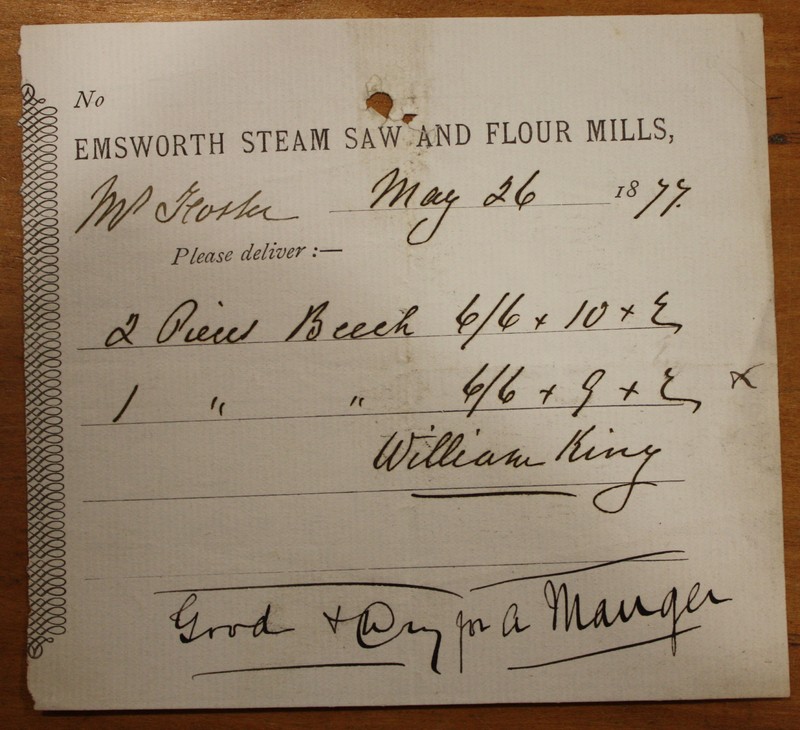 No
EMSWORTH STEAM SAW AND FLOUR MILLS,
Mr Foster May 26 1877.
Please deliver :—
2 Pieces Beech 6/6 × 10 × 2
1 " " 6/6 × 9 × 2 ×
William King
Good & Dry for a Manger